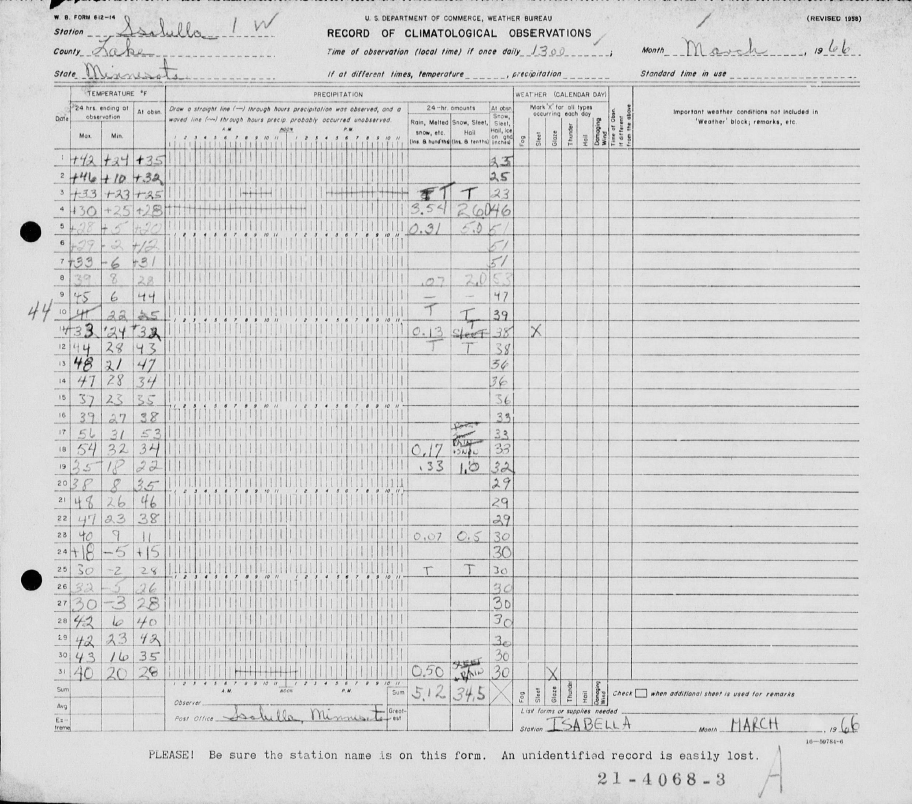 W. B. FORM 612-14
U. S. DEPARTMENT OF COMMERCE, WEATHER BUREAU
(REVISED 1958)
Station Isabella 1 W
RECORD OF CLIMATOLOGICAL OBSERVATIONS
County Lake
Time of observation (local time) if once daily 1300
Month March, 1966
State Minnesota
If at different times, temperature, precipitation
Standard time in use
TEMPERATURE °F PRECIPITATION WEATHER (CALENDAR DAY)
Date 24 hrs. ending at observation Max. Min. At obsn.
Draw a straight line (—) through hours precipitation was observed, and a waved line (~) through hours precip probably occurred unobserved.
A.M. NOON P.M.
24-hr. amounts Rain, Melted snow, etc. (Ins. & hundths) Snow, Sleet, Hail (Ins. & tenths)
At obsn. Snow, Sleet, Hail, Ice on grd inches
Mark 'X' for all types occurring each day
Fog Sleet Glaze Thunder Hail Damaging Wind Time of Obsn if different from the above
Important weather conditions not included in 'Weather' block; remarks, etc.
1 +42 +24 +35 23
2 +46 +10 +32 25
3 +33 +23 +25 T T 23
4 +30 +25 +28 3.54 26.0 46
5 +28 +5 +20 0.31 5.0 51
6 +29 -2 +12 51
7 +33 -6 +31 51
8 39 8 28 .07 2.0 53
9 45 6 44 — — 47
44
10 41 22 25 T T 39
11 +33 +24 +32 0.13 T Sleet 38 X
12 44 28 43 T T 38
13 48 21 47 36
14 47 28 34 36
15 37 23 35 36
16 39 27 38 33
17 56 31 53 33
18 54 32 34 0.17 RAIN + SNOW 33
19 35 18 22 .33 1.0 32
20 38 8 35 29
21 48 26 46 29
22 47 23 38 29
23 40 9 11 0.07 0.5 30
24 +18 -5 +15 30
25 30 -2 28 T T 30
26 32 -5 26 30
27 30 -3 28 30
28 42 6 40 30
29 42 23 42 30
30 43 16 35 30
31 40 20 28 0.50 SLEET + RAIN 30 X
Sum A.M. NOON P.M. Sum 5.12 34.5
Fog Sleet Glaze Thunder Hail Damaging Wind
Check when additional sheet is used for remarks
Avg Observer
Greatest
List forms or supplies needed
Extreme Post Office Isabella, Minnesota
Station ISABELLA Month MARCH, 1966
PLEASE! Be sure the station name is on this form. An unidentified record is easily lost.
21-4068-3
A